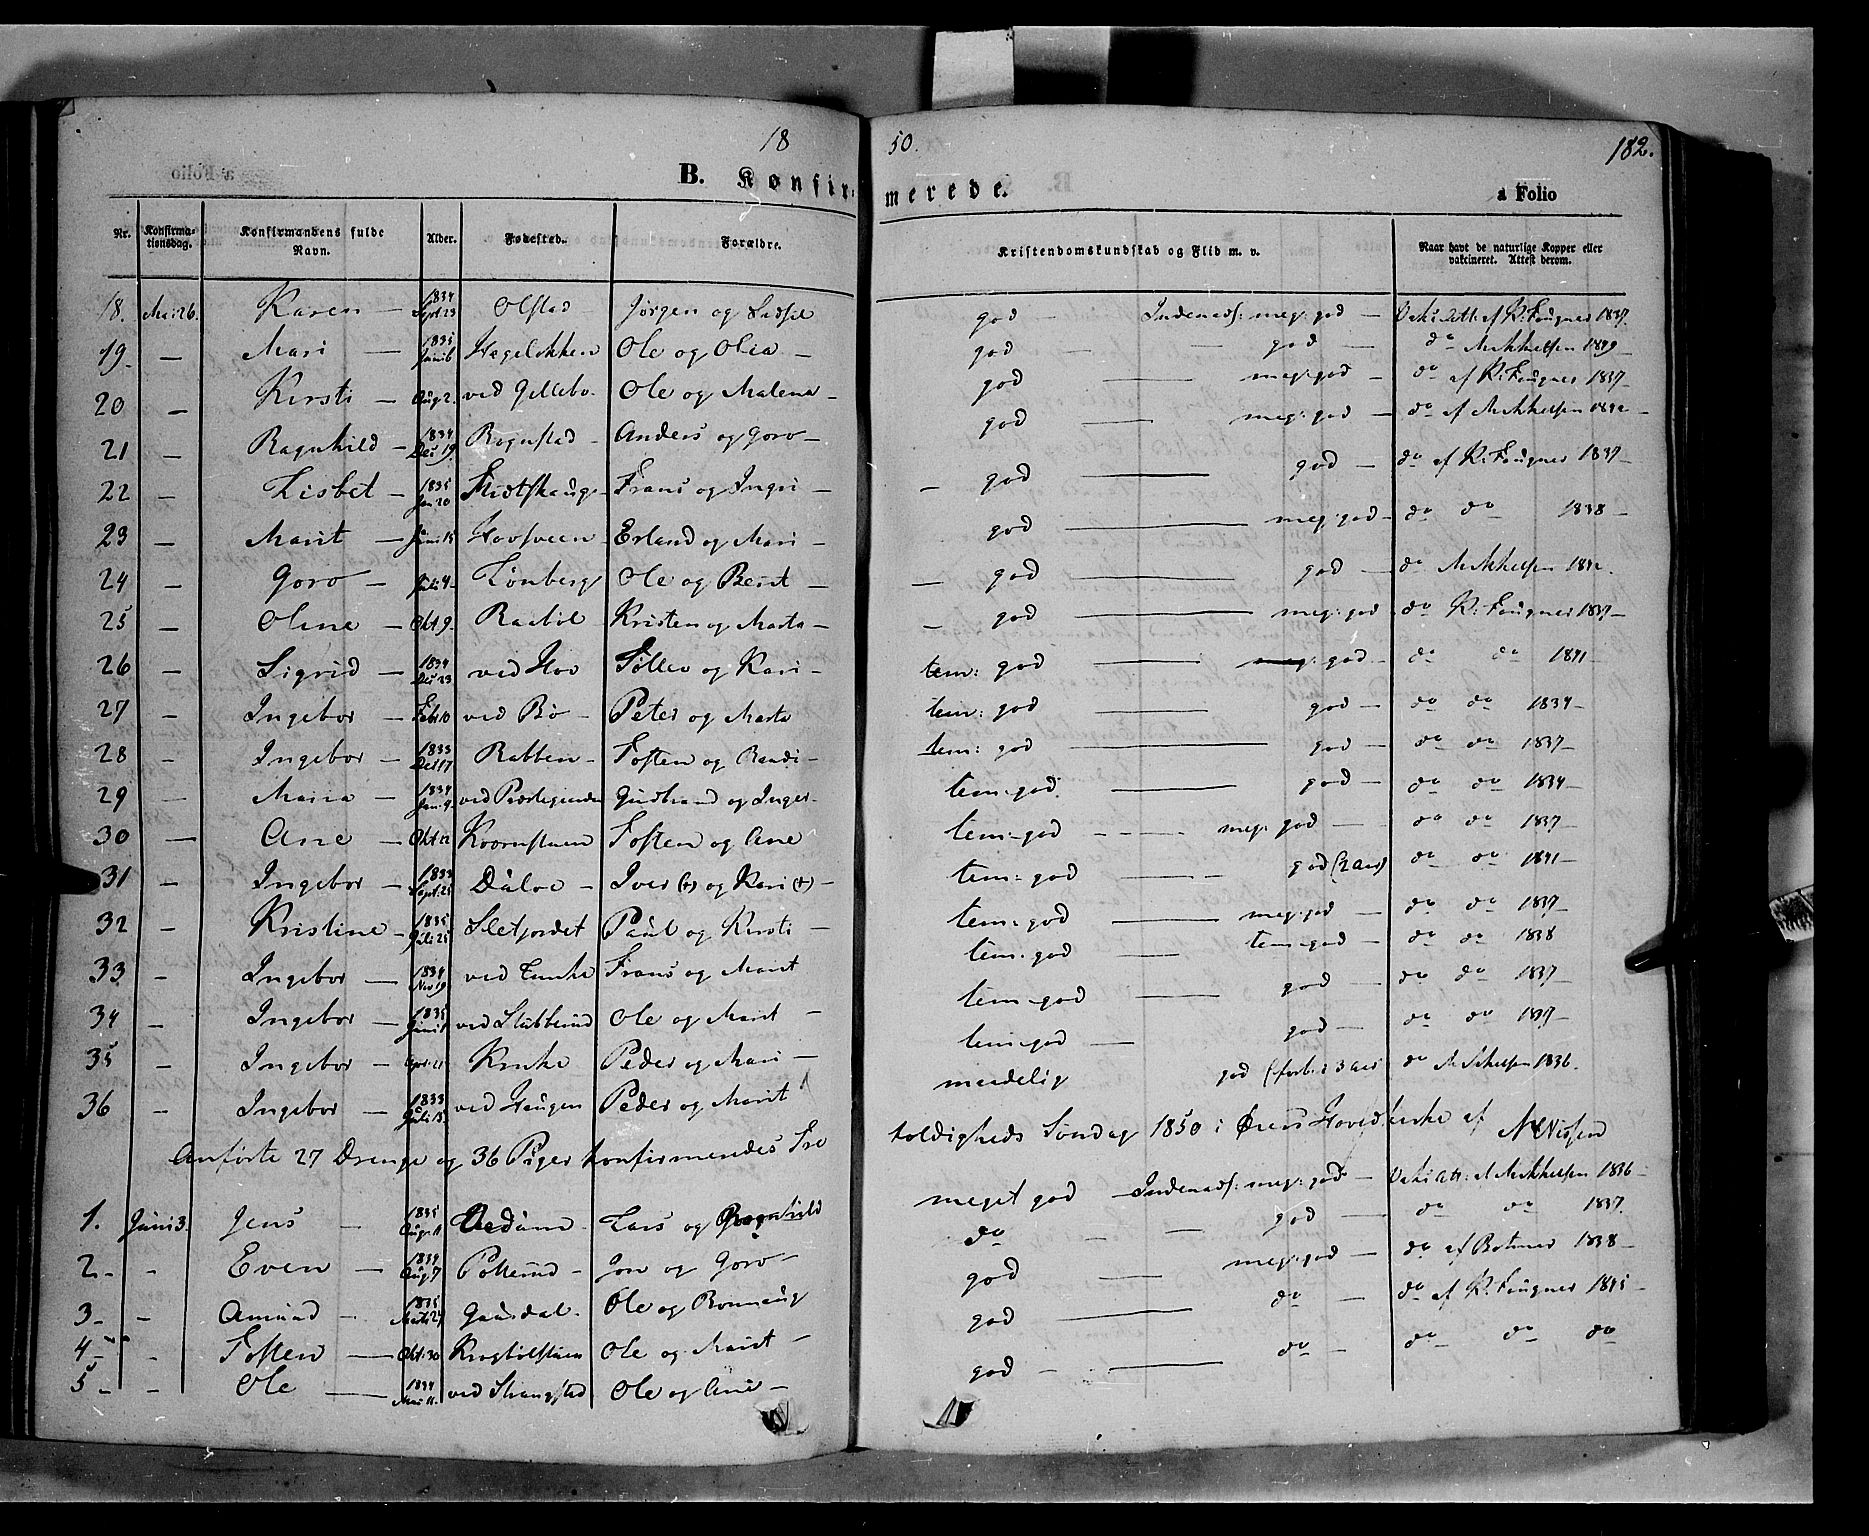 18 50. 182.
B. Konfirmerede. a Folio
Nr. Konfirmationsdag. Konfirmandens fulde Navn. Alder. Fødested. Forældre. Kristendomskundskab og Flid m. v. Naar havt de naturlige Kopper eller vakcineret. Attest derom.
18. Mai 26. Karen — 1834 Sept. 23 Olstad Jørgen og god — Indenadsl: meg: god — Vaks: Att: af K: Fougner 1837.
19 — Mari — 1835 Juni 6 Ole og Olea — god — — god — do Mikkelsen
20 — Kirsti — Aug 2. ved Gillebo Ole og Malena — god — meg: god — do af K: Fougner 1837 —
21 — Ragnhild — 1834 Des 19. Rognstad — Anders og Goro — god — meg: god — do af Mikkelsen
22 — Lisbet — 1835 Jan 20 Frans og Ingri — god — god — do af K: Fougner 1837 —
23 — Marit — Juni 15 Hovsveen Erland og Mari — god — meg: god — do do 1838 —
24 — Goro — Juli 4 Lønberg Ole og Berit — god — god — do Mikkelsen
25 — Oline — Okt 9. Kristen og Marta — god — meg: god do K: Fougner 1837 —
26 — Sigrid — 1834 Des 23 ved Hov Tollev og Kari — tem: god — god — do do 1841 —
27 — Ingebor — Febr 10 ved Bø — Peter og Marta tem: god — god — do do 1834 —
28 — Ingebor — 1833 Des 17 Rabben — Tosten og Randi — tem: god — god — do do 1837 —
29 — Maria — 1834 Jan. 9. ved Gudbrand og Inger — tem: god — god — do do 1834 —
30 — Ane — Okt 12 Tosten og Ane tem: god — meg: god — do do 1837 —
31 — Ingebor — 1833 Sept. 25 Iver (†) og Kari (†) — tem: god — god (2 Aar) do do 1841 —
32 — Kristine — 1835 Juli 25 Sletjordet Paul og Kirsti — tem: god — meg: god — do do 1837 —
33 — Ingebor — 1834 Nov 19 ved Frans og Marit tem: god — tem: god — do do 1838
34 — Ingebor — 1835 Juni 1 ved Stubberud Ole og Marit — tem: god — god — do do 1837
35 — Ingebor — Kruke Peder og Mari — tem: god — god — do do
36 — Ingebor — 1833 Juli 15. ved Haugen Peder og Marit maadelig god (forb: i 3 Aar do Mikkelsen 1836.
Anførte 27 Drenge og 36 Piger konfirmeredes Trefoldigheds Søndag 1850 i Øiers Hovedkirke af N. Nissen
1. Juni 3. Jens — 1835 Aug. 11 Lars og Ragnhild meget god — Indenadsl: meg: god — Vaks: Att: Mikkelsen 1836 —
2 — — Even — 1834 Aug 7 Jon og Goro — do — god — do do 1837.
3 — — Amund — 1835 Marts 27 Gausdal — Ole og Ronnaug god — meg: god — do af Bøhmer 1838 —
4 — — Tosten — Okt: 30 Ole og Marit — god — do — do af K: Fougner 1845 —
5 — — Ole — 1834 Mai 11. ved Ole og Ane — god — do — do do do